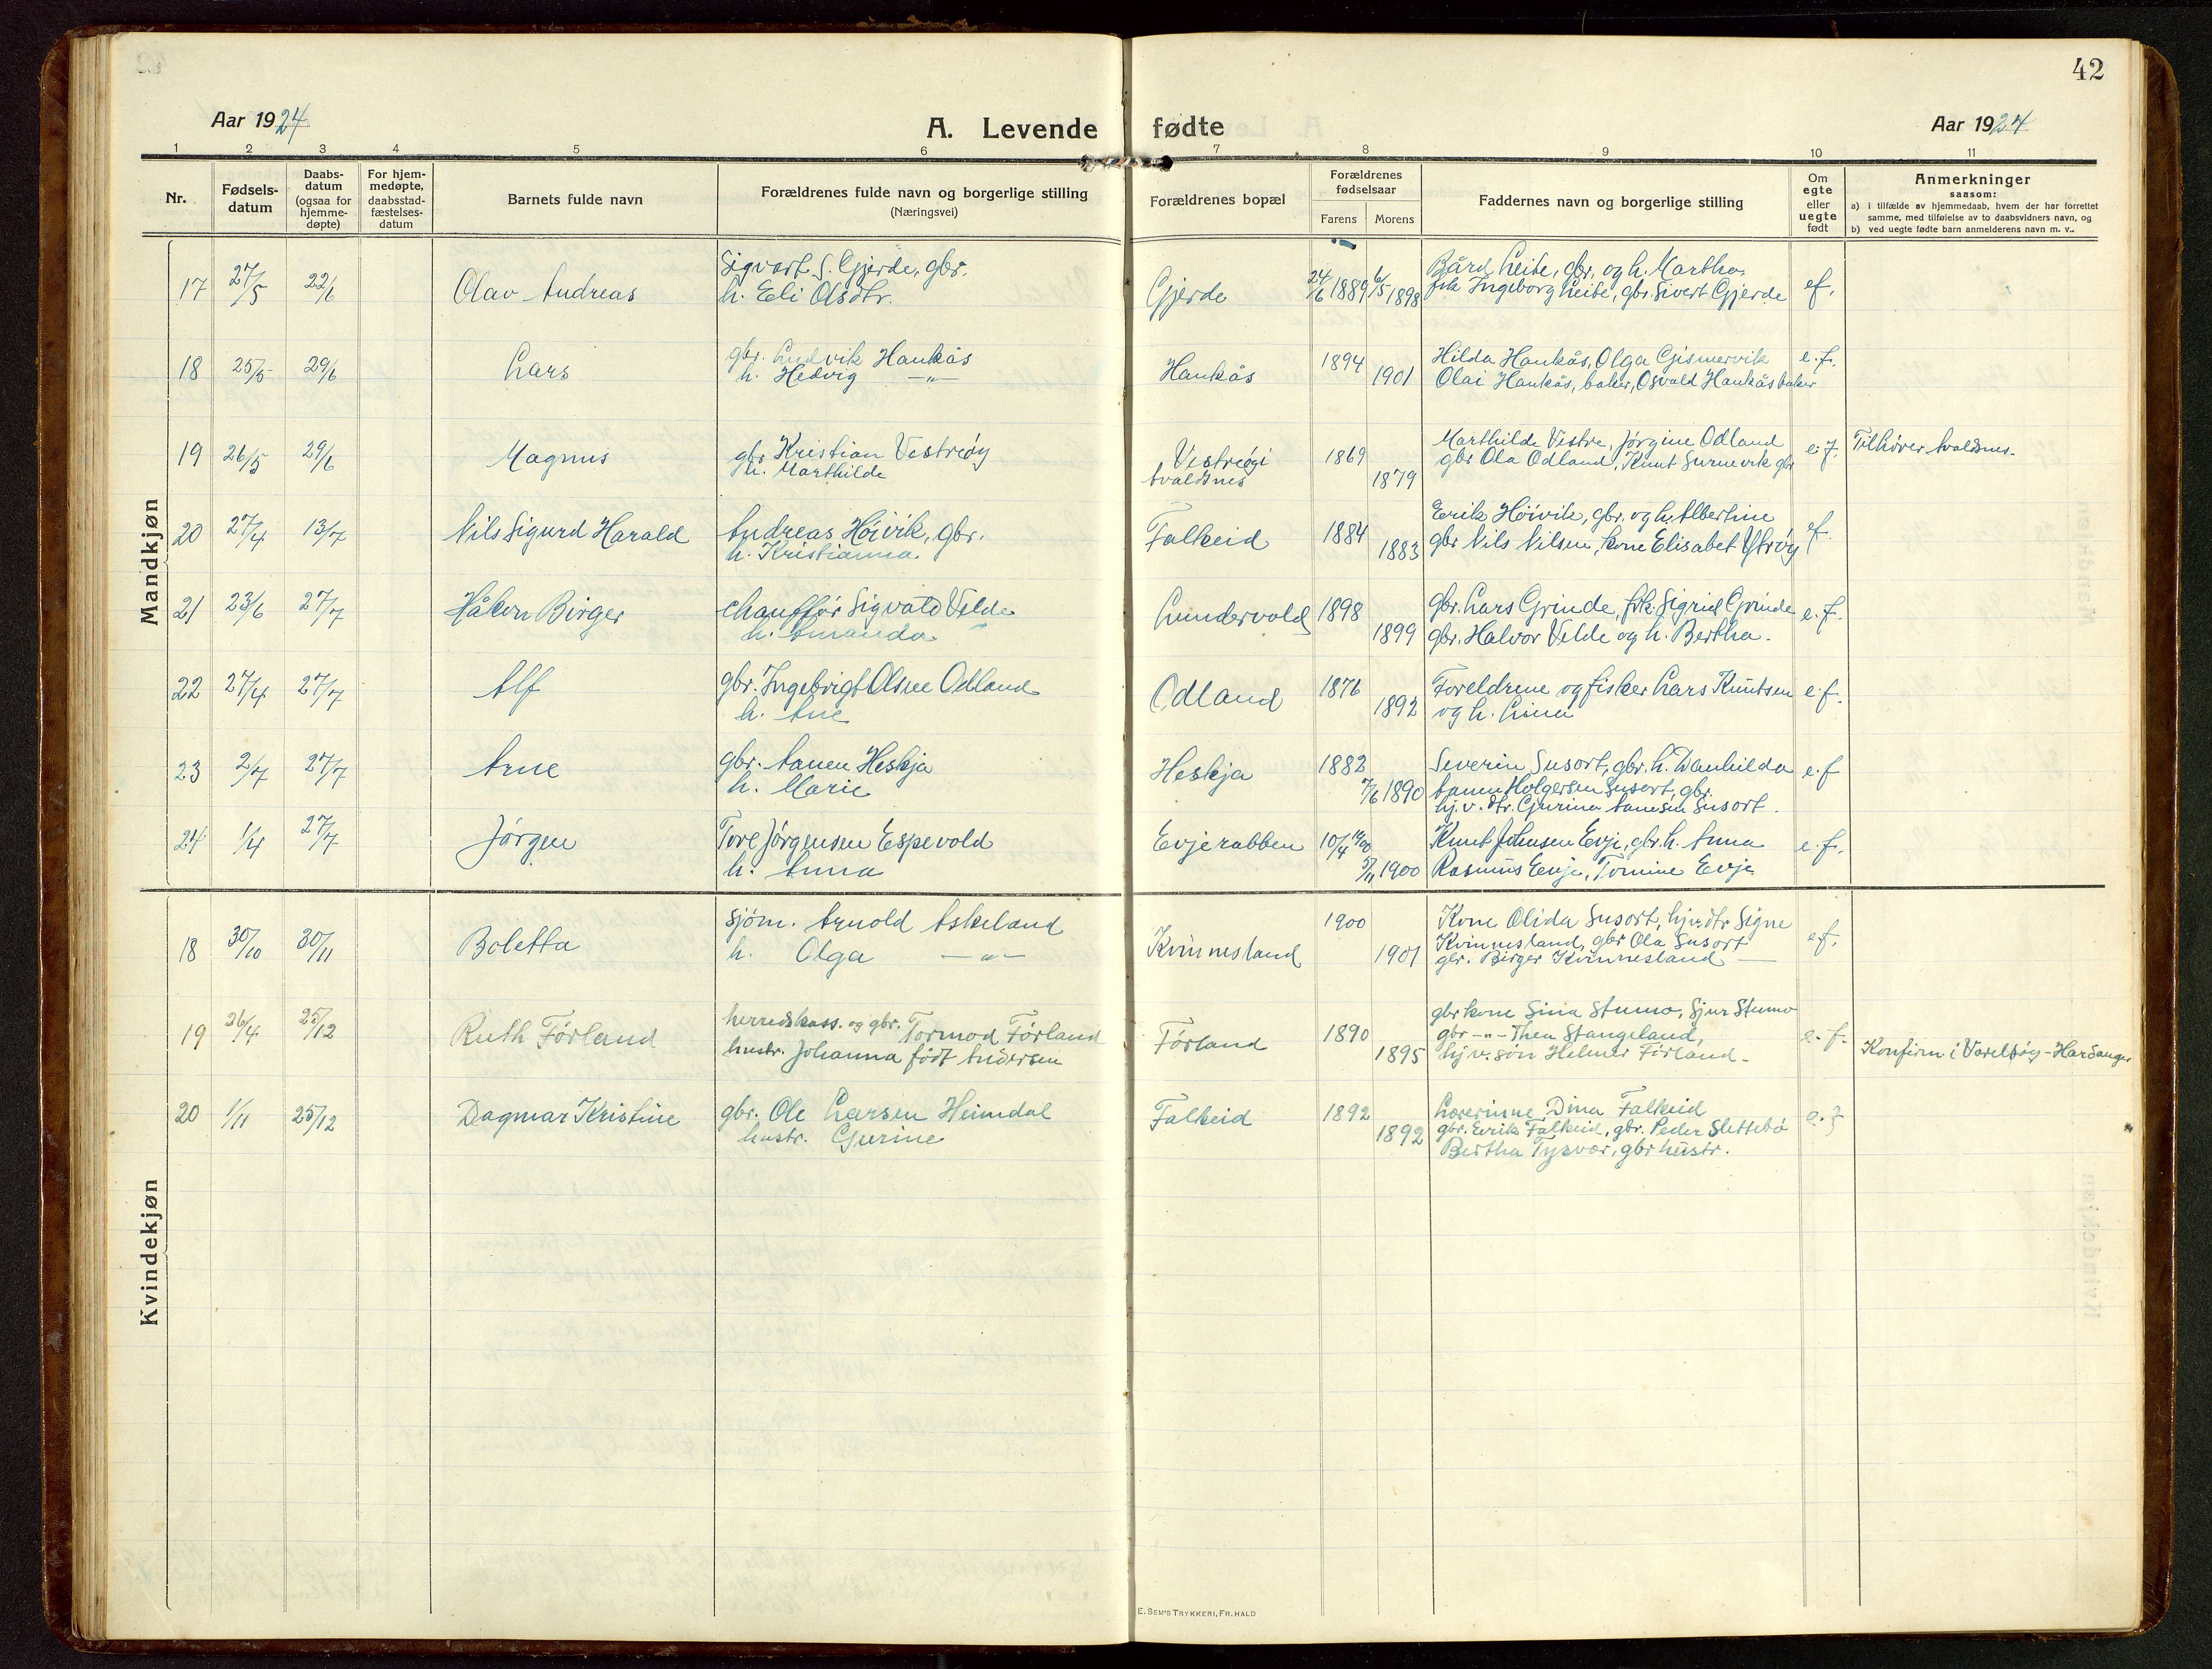 42
Aar 1924
A. Levende fødte
Aar 1924
1 2 3 4 5 6 7 8 9 10 11
Nr.
Fødsels-
datum
Daabs-
datum
(ogsaa for
hjemme-
døpte)
For hjem-
medøpte,
daabsstad-
fæstelses-
datum
Barnets fulde navn
Forældrenes fulde navn og borgerlige stilling
(Næringsvei)
Forældrenes bopæl
Forældrenes
fødselsaar
Farens Morens
Faddernes navn og borgerlige stilling
Om
egte
eller
uegte
født
Anmerkninger
saasom:
a) i tilfælde av hjemmedaab, hvem der har forrettet
samme, med tilføielse av to daabsvidners navn, og
b) ved uegte fødte barn anmelderens navn m. v..
Mandkjøn
17 27/5 22/6 Olav Andreas Sigvart S. Gjerde, gbr.
h. Eli Olsdtr.
Gjerde 24/6 1889 6/5 1898
Bård Leite, gbr. og h. Martha.
frk Ingeborg Leite, gbr. Sivert Gjerde
ef.
18 25/5 29/6 Lars gbr. Ludvik Haukås
h. Hedvig —"—
Haukås 1894 1901
Hilda Haukås, Olga Gismervik
Olai Haukås, baker, Osvald Haukås baker
e.f.
19 26/5 29/6 Magnus gbr Kristian Vestreøy
h. Marthilde
Vestreøgi
Avaldsnes
1869 1879
Marthilde Vestre, Jørgine Odland
gbr Ola Odland, Knut Surnevik gbr
e.f. Tilhører Avaldsnes.
20 27/4 13/7 Nils Sigurd Harald Andreas Høivik, gbr.
h. Kristianna
Falkeid 1884 1883
Erik Höivik, gbr. og h. Albertine
gbr Nils Nilsen, kone Elisabet Ytrøy
ef.
21 23/6 27/7 Håkon Birger chauffør Sigvald Velde
h. Amanda
Lundervold 1898 1899
gbr. Lars Grinde, frk. Sigrid Grinde
gbr. Halvor Velde og h. Bertha.
e.f.
22 27/4 27/7 Alf gbr. Ingebrigt Olsen Odland
h. Ane
Odland 1876 1892
Foreldrene og fisker Lars Knutsen
og h. Lina
e.f.
23 2/7 27/7 Arne gbr. Aanen Heskja
h. Marie
Heskja 1882 7/6 1890
Severin Susort, gbr. h. Danhilda
Aanen Holgersen Susort, gbr.
hj.v. dtr. Gjurina Aanesen Susort.
e.f
24 1/4 27/7 Jörgen Tore Jørgensen Espevold
h. Anna
Evjerabben 10/4 1900 5/11 1900
Knut Johnsen Evje, gbr. h. Anna
Rasmus Evje, Tomine Evje
e.f.
Kvindekjøn
18 30/10 30/11 Boletta sjøm. Arnold Askeland
h. Olga —"—
Kvinnesland 1900 1901
Kone Olida Susort, hjv. dtr Signe
Kvinnesland, gbr Ola Susort
gbr. Birger Kvinnesland —
e.f.
19 26/4 25/12 Ruth Førland herredskass. og gbr. Tormod Førland
hustr. Johanna født Andersen
Førland 1890 1895
gbr kone Sina Stumo, Sjur Stumo
gbr —"— Thea Stangeland,
hjv. søn Helmer Førland.
e.f. Konfirm i Varelsøy - Hardanger
20 1/11 25/12 Dagmar Kristine gbr. Ole Larsen Heimdal
hustr. Gjurine
Falkeid 1892 1892
Lærerinne Dina Falkeid
gbr. Erik Falkeid, gbr. Peder Slettebø
Bertha Tysvær, gbr hustr.
e.f
E. SEM'S TRYKKERI, FR. HALD